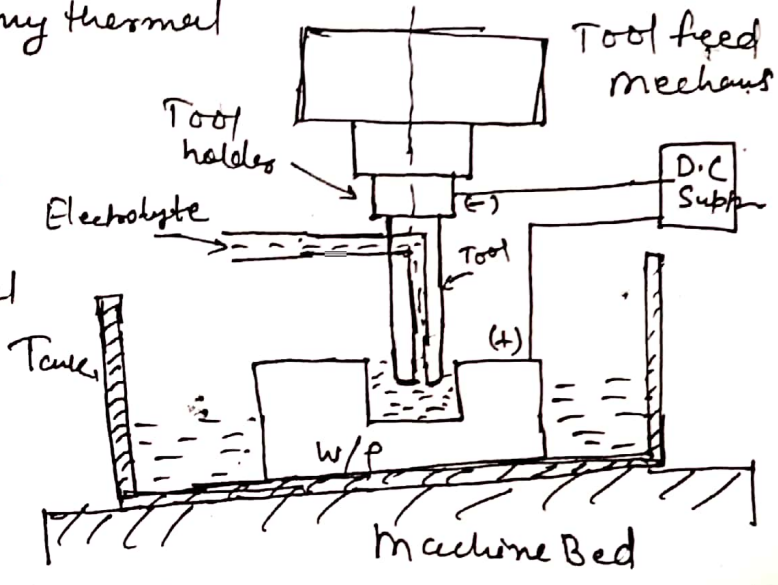 my thermal
Tool feed
mechans
Tool
holder
D.C
Supp
(-)
Electrolyte
Tool
(+)
Tank
W/P
Machine Bed